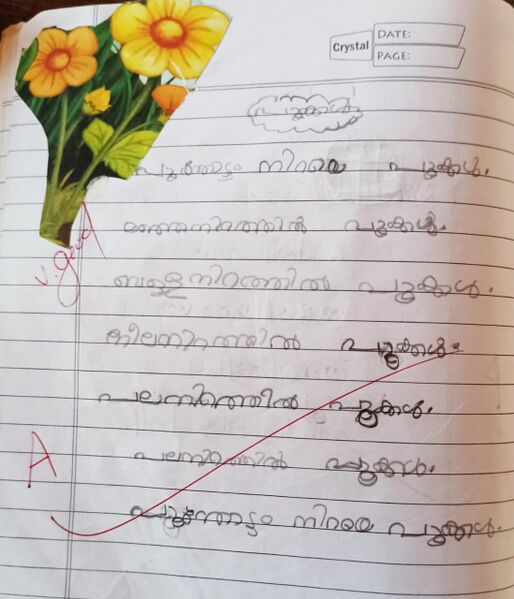 Crystal
DATE:
PAGE:
പൂക്കൾ
പൂന്തോട്ടം നിറയെ പൂക്കൾ.
മഞ്ഞനിറത്തിൽ പൂക്കൾ.
വെള്ളനിറത്തിൽ പൂക്കൾ.
നീലനിറത്തിൽ പൂക്കൾ.
പലനിറത്തിൽ പൂക്കൾ.
പലനിറത്തിൽ പൂക്കൾ.
പൂന്തോട്ടം നിറയെ പൂക്കൾ.
v. good
A